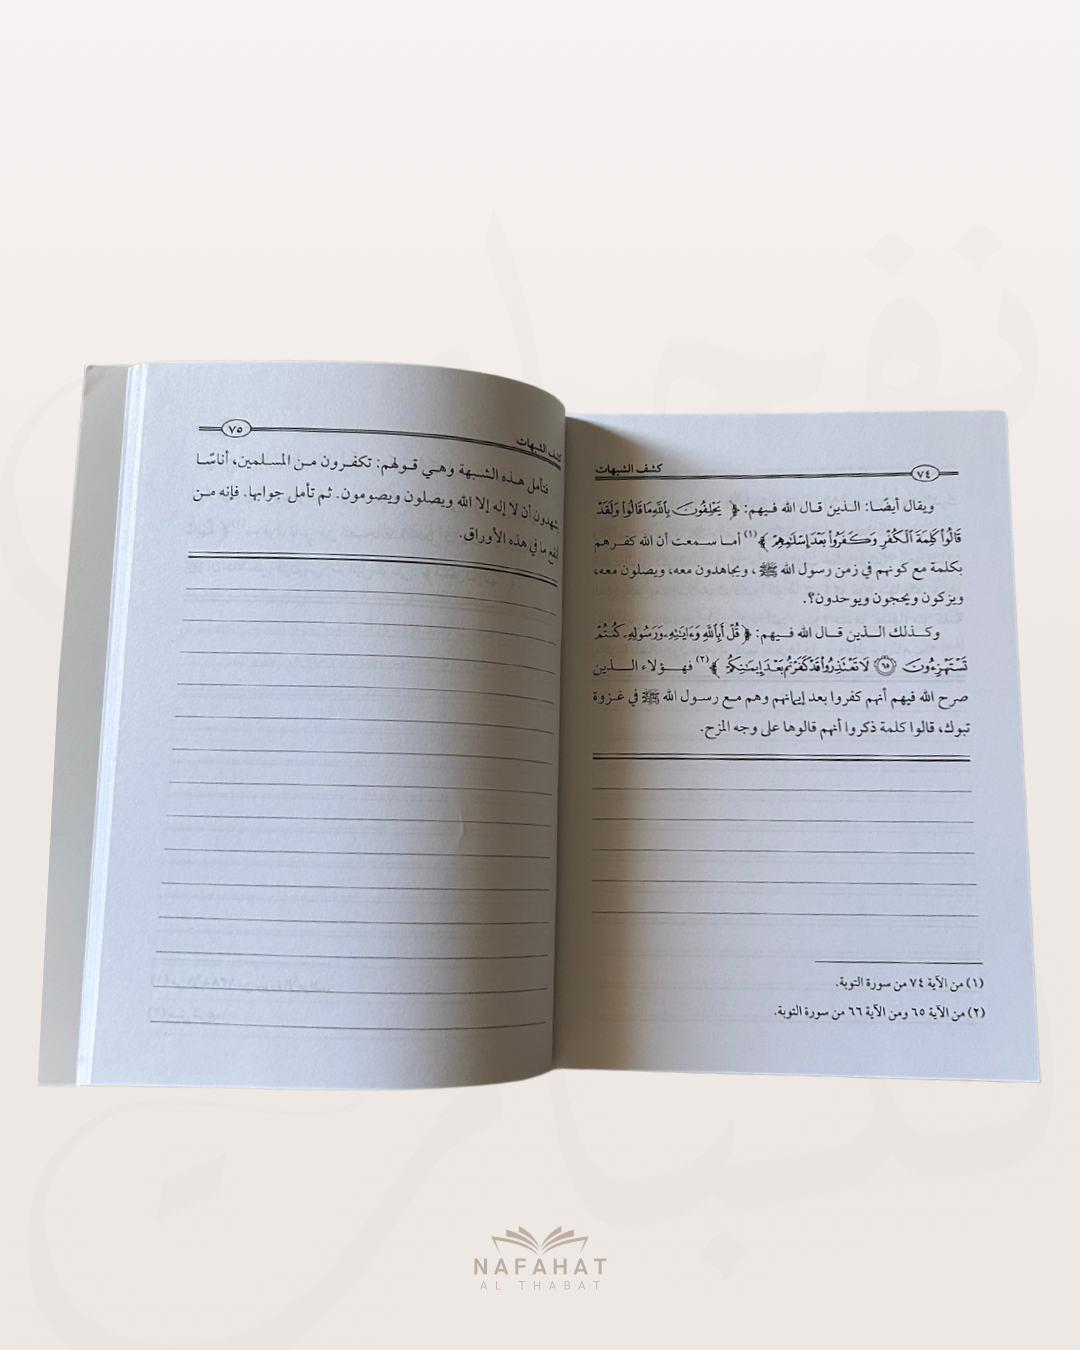 كشف الشبهات
٧٤
ويقال أيضًا: الذين قال الله فيهم: ﴿ يَحْلِفُونَ بِٱللَّهِ مَا قَالُوا۟ وَلَقَدْ
قَالُوا۟ كَلِمَةَ ٱلْكُفْرِ وَكَفَرُوا۟ بَعْدَ إِسْلَٰمِهِمْ ﴾(١) أما سمعت أن الله كفرهم
بكلمة مع كونهم في زمن رسول الله ﷺ، ويجاهدون معه، ويصلون معه،
ويزكون ويحجون ويوحدون؟.
وكذلك الذين قال الله فيهم: ﴿ قُلْ أَبِٱللَّهِ وَءَايَٰتِهِۦ وَرَسُولِهِۦ كُنتُمْ
تَسْتَهْزِءُونَ ٦٥ لَا تَعْتَذِرُوا۟ قَدْ كَفَرْتُم بَعْدَ إِيمَٰنِكُمْ ﴾(٢) فهؤلاء الذين
صرح الله فيهم أنهم كفروا بعد إيمانهم وهم مع رسول الله ﷺ في غزوة
تبوك، قالوا كلمة ذكروا أنهم قالوها على وجه المزح.
(١) من الآية ٧٤ من سورة التوبة.
(٢) من الآية ٦٥ ومن الآية ٦٦ من سورة التوبة.
كشف الشبهات
٧٥
فتأمل هذه الشبهة وهي قولهم: تكفرون من المسلمين، أناسًا
يشهدون أن لا إله إلا الله ويصلون ويصومون. ثم تأمل جوابها. فإنه من
أنفع ما في هذه الأوراق.
NAFAHAT
AL THABAT